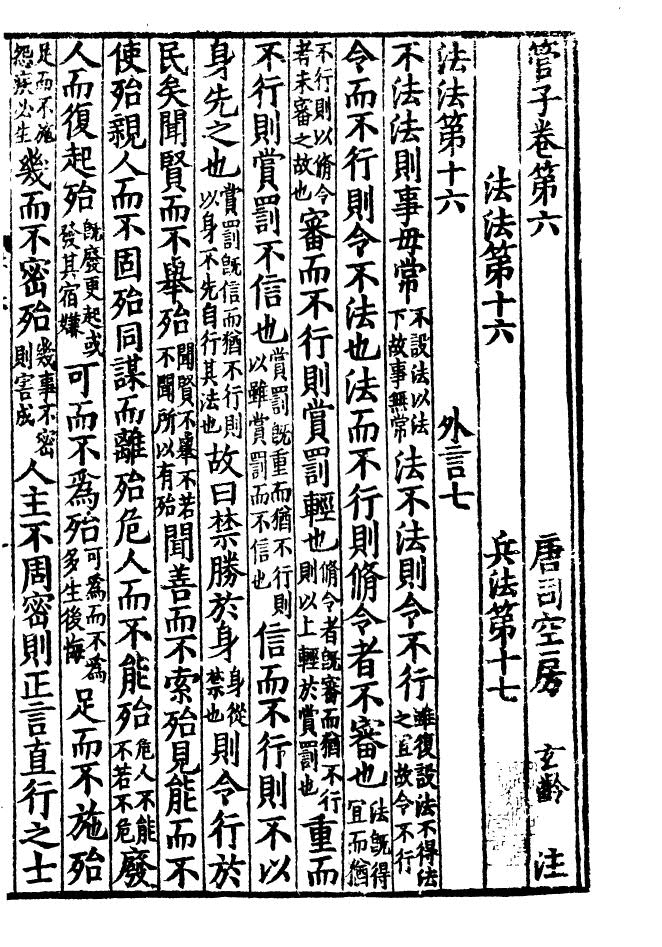 管子卷第六　唐司空房　玄齡　注
法法第十六　兵法第十七
法法第十六　外言七
不法法則事毋常不設法以法下故事無常法不法則令不行雖復設法不得法之宜故令不行
令而不行則令不法也法而不行則脩令者不審也法旣得宜而猶
不行則以脩令者未審之故也審而不行則賞罰輕也脩令者旣審而猶不行則以上輕於賞罰也重而
不行則賞罰不信也賞罰旣重而猶不行則以雖賞罰而不信也信而不行則不以
身先之也賞罰旣信而猶不行則以身不先自行其法也故曰禁勝於身身從禁也則令行於
民矣聞賢而不舉殆聞賢不舉不若不聞所以有殆聞善而不索殆見能而不
使殆親人而不固殆同謀而離殆危人而不能殆危人不能不若不危廢
人而復起殆旣廢更起或發其宿嫌可而不爲殆可爲而不爲多生後悔足而不施殆
足而不施怨疾必生幾而不密殆幾事不密則害成人主不周密則正言直行之士